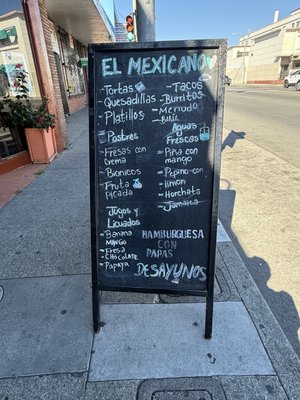 EL MEXICANO
-Tortas
-Quesadillas
-Platillos
Postres
-Fresas con
Crema
-Bionicos
-Fruta
picada
Jugos y
Licuados
-Banana
mango
-Fresa
-CHOCOLATE
-Papaya
-Tacos
-Burritos
-Menudo
-BIRIA
Aguas
Frescas
-Piña con
mango
-Pepino con
limon
-Horchata
-Jamaica
HAMBURGUESA
CON
PAPAS
DESAYUNOS